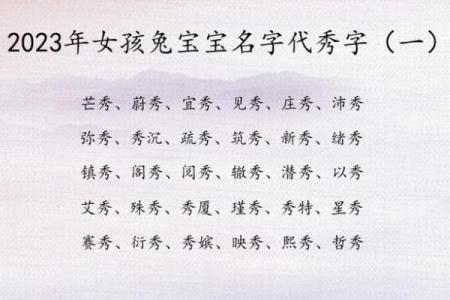 2023年女孩兔宝宝名字代秀字（一）
芒秀、蔚秀、宜秀、见秀、庄秀、沛秀
弥秀、秀沉、疏秀、筑秀、新秀、绪秀
镇秀、阁秀、阅秀、辙秀、潜秀、以秀
艾秀、殊秀、秀厦、瑾秀、秀特、星秀
赛秀、衍秀、秀嫔、映秀、熙秀、哲秀